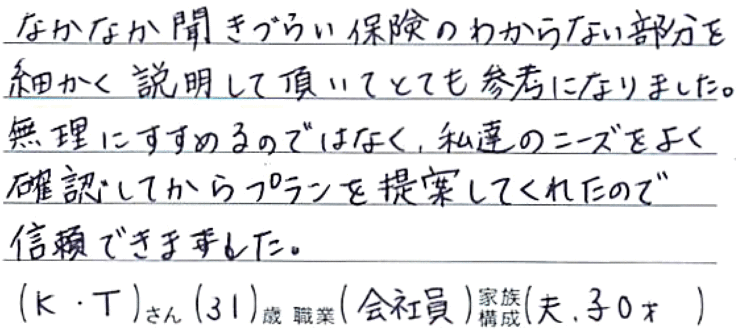 なかなか聞きづらい保険のわからない部分を
細かく説明して頂いてとても参考になりました。
無理にすすめるのではなく、私達のニーズをよく
確認してからプランを提案してくれたので
信頼できました。
(K・T)さん(31)歳 職業(会社員)家族構成(夫、子0才 )